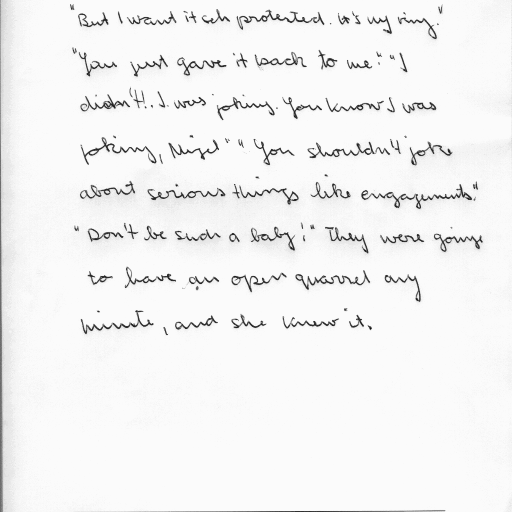 "But I want it protected. It's my ring."
"You just gave it back to me." "I
didn't!. I was joking. You know I was
joking, Nigel" "You shouldn't joke
about serious things like engagements."
"Don't be such a baby!" They were going
to have an open quarrel any
minute, and she knew it.